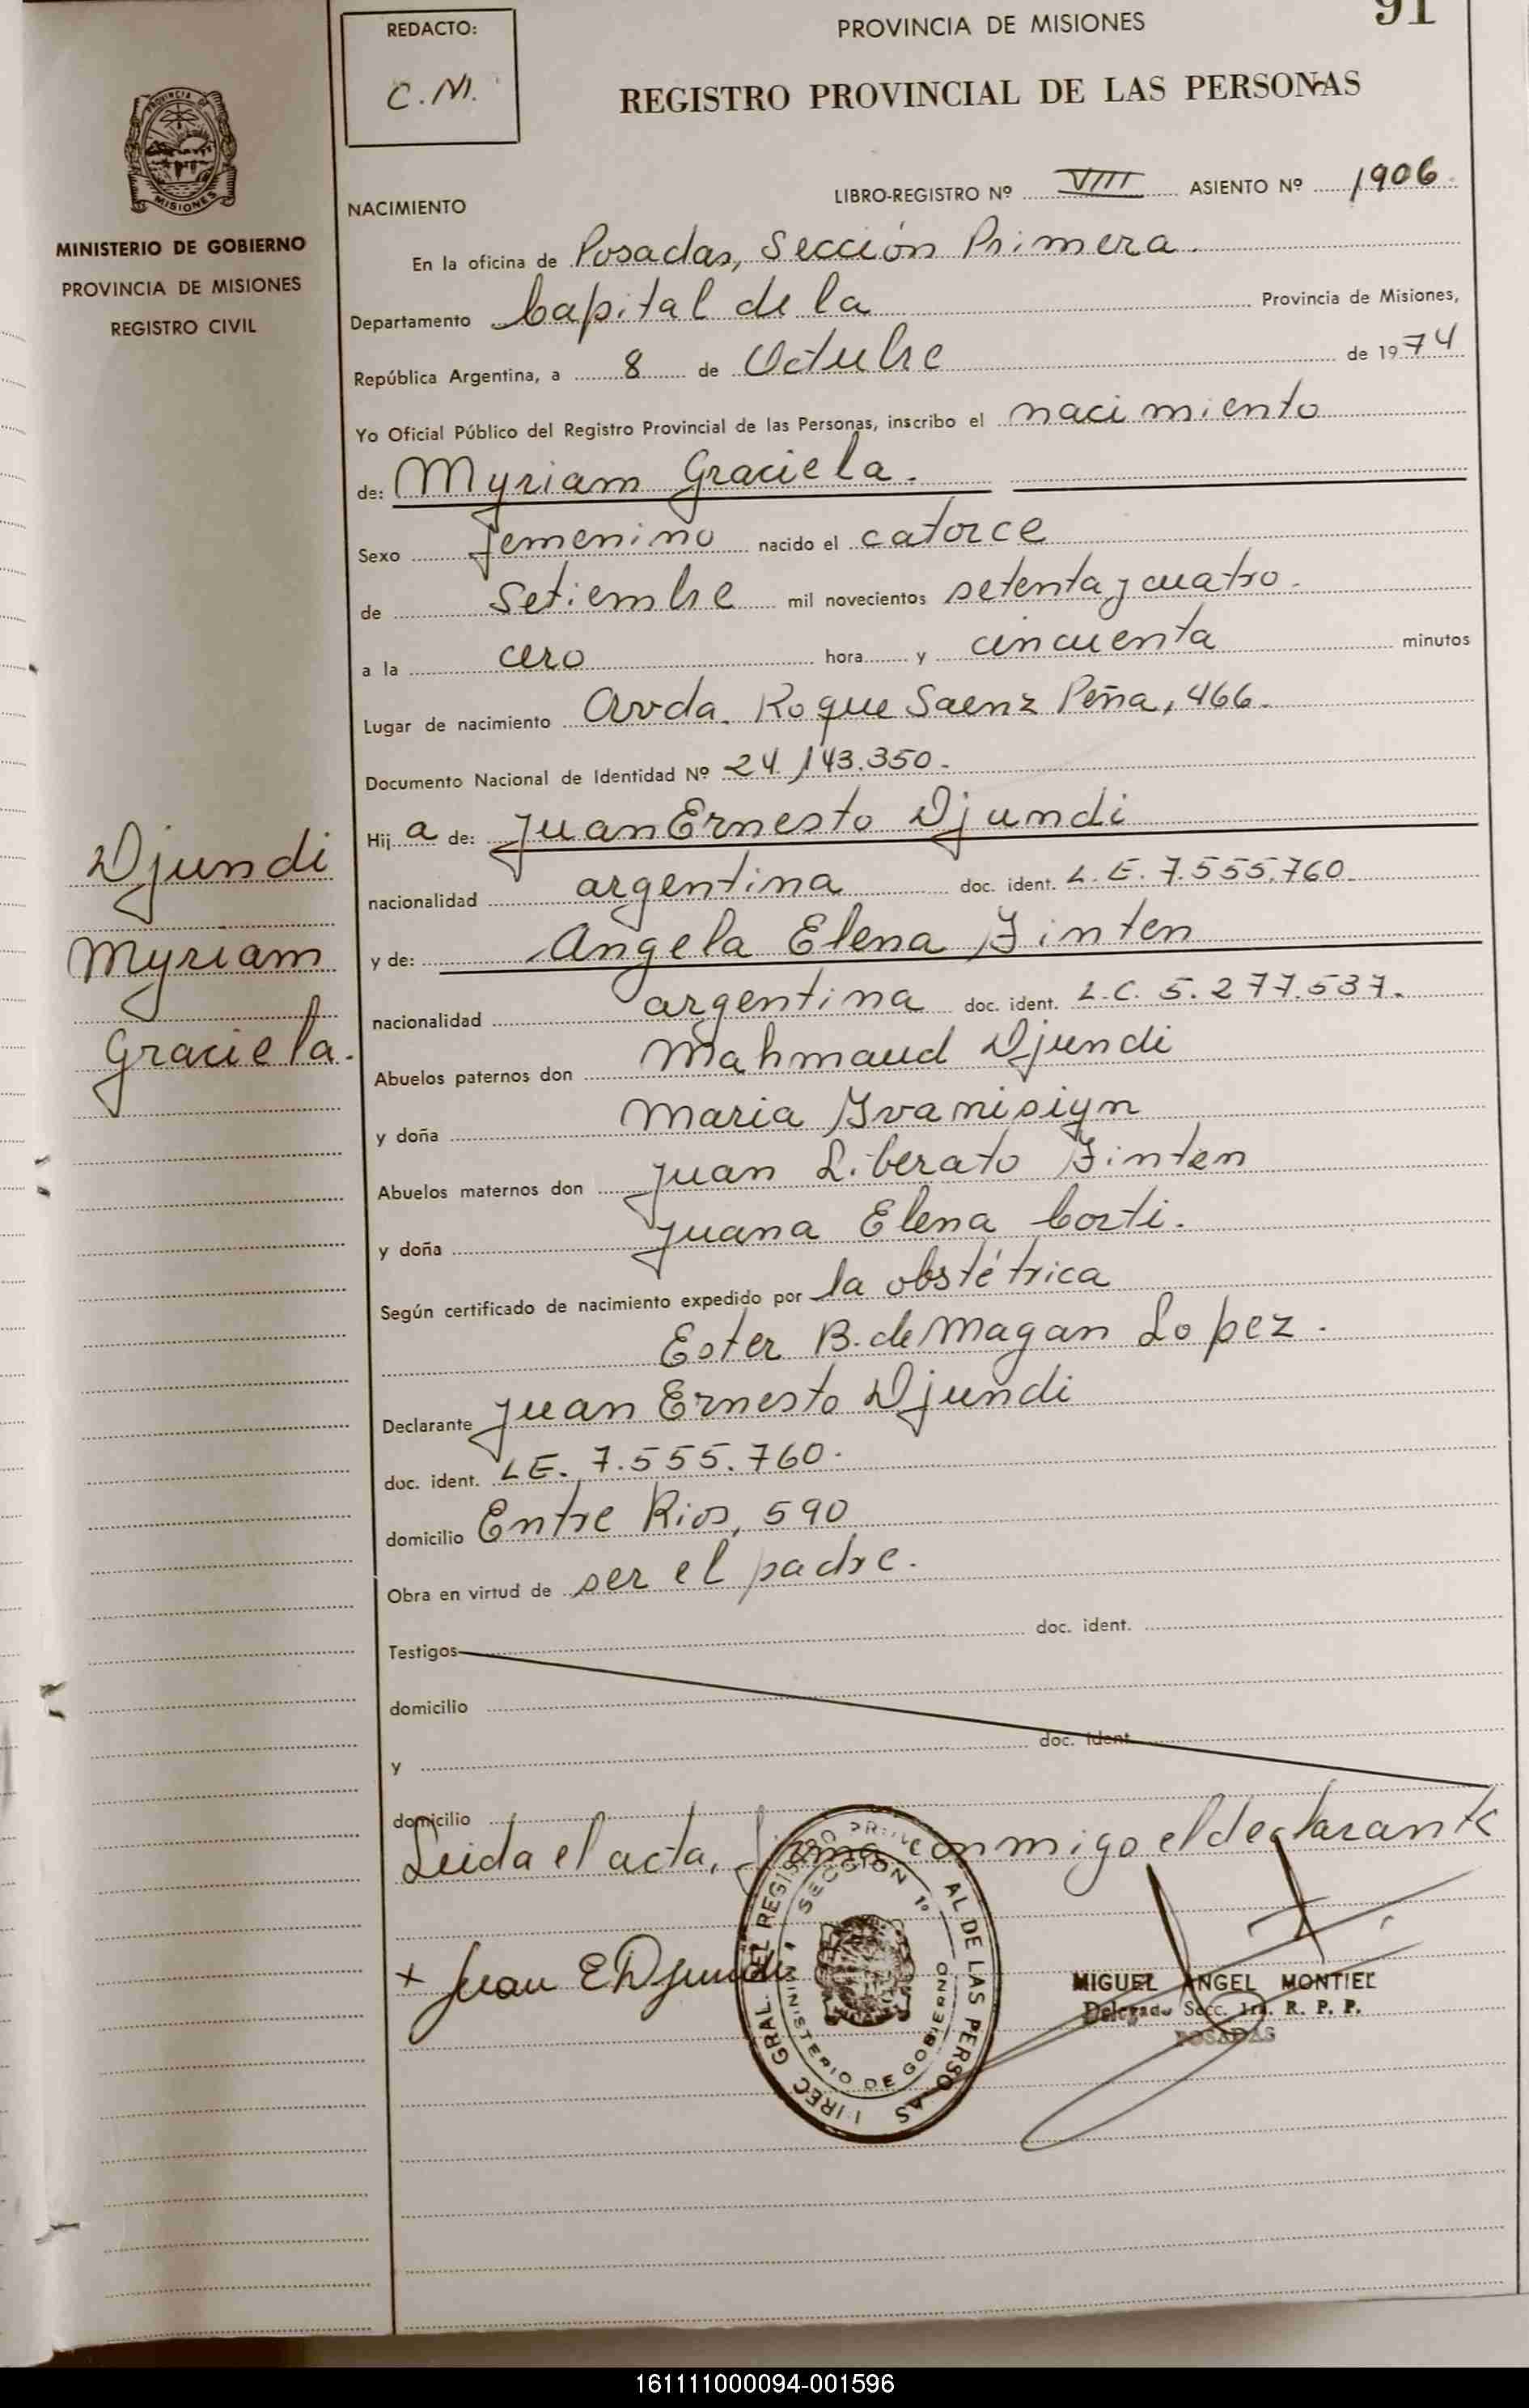 91
REDACTO:
C.M.
PROVINCIA DE MISIONES
REGISTRO PROVINCIAL DE LAS PERSONAS
PROVINCIA DE
MISIONES
MINISTERIO DE GOBIERNO
PROVINCIA DE MISIONES
REGISTRO CIVIL
LIBRO-REGISTRO Nº VIII ASIENTO Nº 1906
NACIMIENTO
En la oficina de Posadas, Sección Primera.
Departamento Capital de la Provincia de Misiones,
República Argentina, a 8 de Octubre de 1974
Yo Oficial Público del Registro Provincial de las Personas, inscribo el nacimiento
de: Myriam Graciela.
Sexo femenino nacido el catorce
de Setiembre mil novecientos setenta y cuatro.
a la cero hora y cincuenta minutos
Lugar de nacimiento Avda. Roque Saenz Peña, 466.
Documento Nacional de Identidad Nº 24.143.350.
Hija de: Juan Ernesto Djundi
nacionalidad argentina doc. ident. L.E. 7.555.760.
y de: Angela Elena Zinten
nacionalidad argentina doc. ident. L.C. 5.277.537.
Abuelos paternos don Mahmaud Djundi
y doña Maria Ivanisiyn
Abuelos maternos don Juan Liberato Zinten
y doña Juana Elena Corti.
Según certificado de nacimiento expedido por la obstétrica
Ester B. de Magan Lopez.
Declarante Juan Ernesto Djundi
doc. ident. LE. 7.555.760.
domicilio Entre Rios, 590
Obra en virtud de ser el padre.
Testigos doc. ident.
domicilio
y doc. ident.
domicilio
Leida el acta, firma conmigo el declarante
x Juan E Djundi
MIGUEL ANGEL MONTIEL
Delegado Secc. 1ra. R. P. P.
POSADAS
SECCION 1º
MINISTERIO DE GOBIERNO
Djundi
Myriam
Graciela.
161111000094-001596